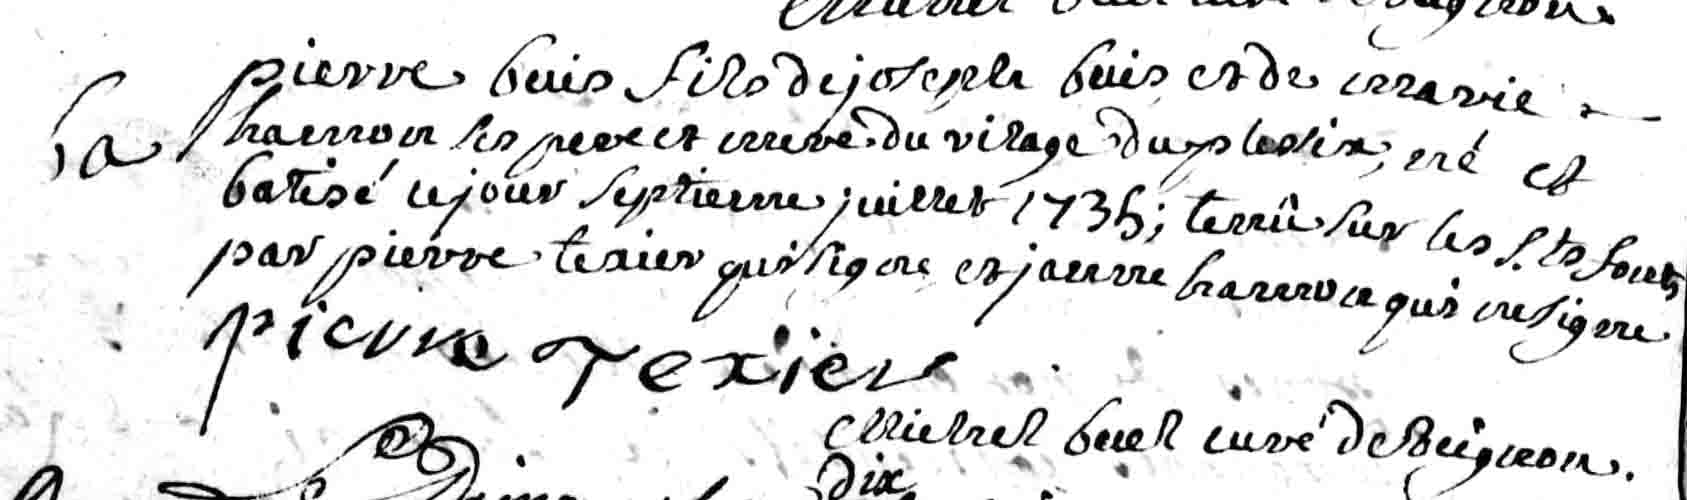 Michel buel curé de Beignon.
pierre buis fils de joseph buis et de marie
hamon ses pere et mere du vilage du plessix, né et
batisé ce jour septieme juillet 1735; tenu sur les S.ts fonts
par pierre texier qui signe et jaenne hamon qui ne signe
pierre Texier
Michel buel curé de Beignon.
dix